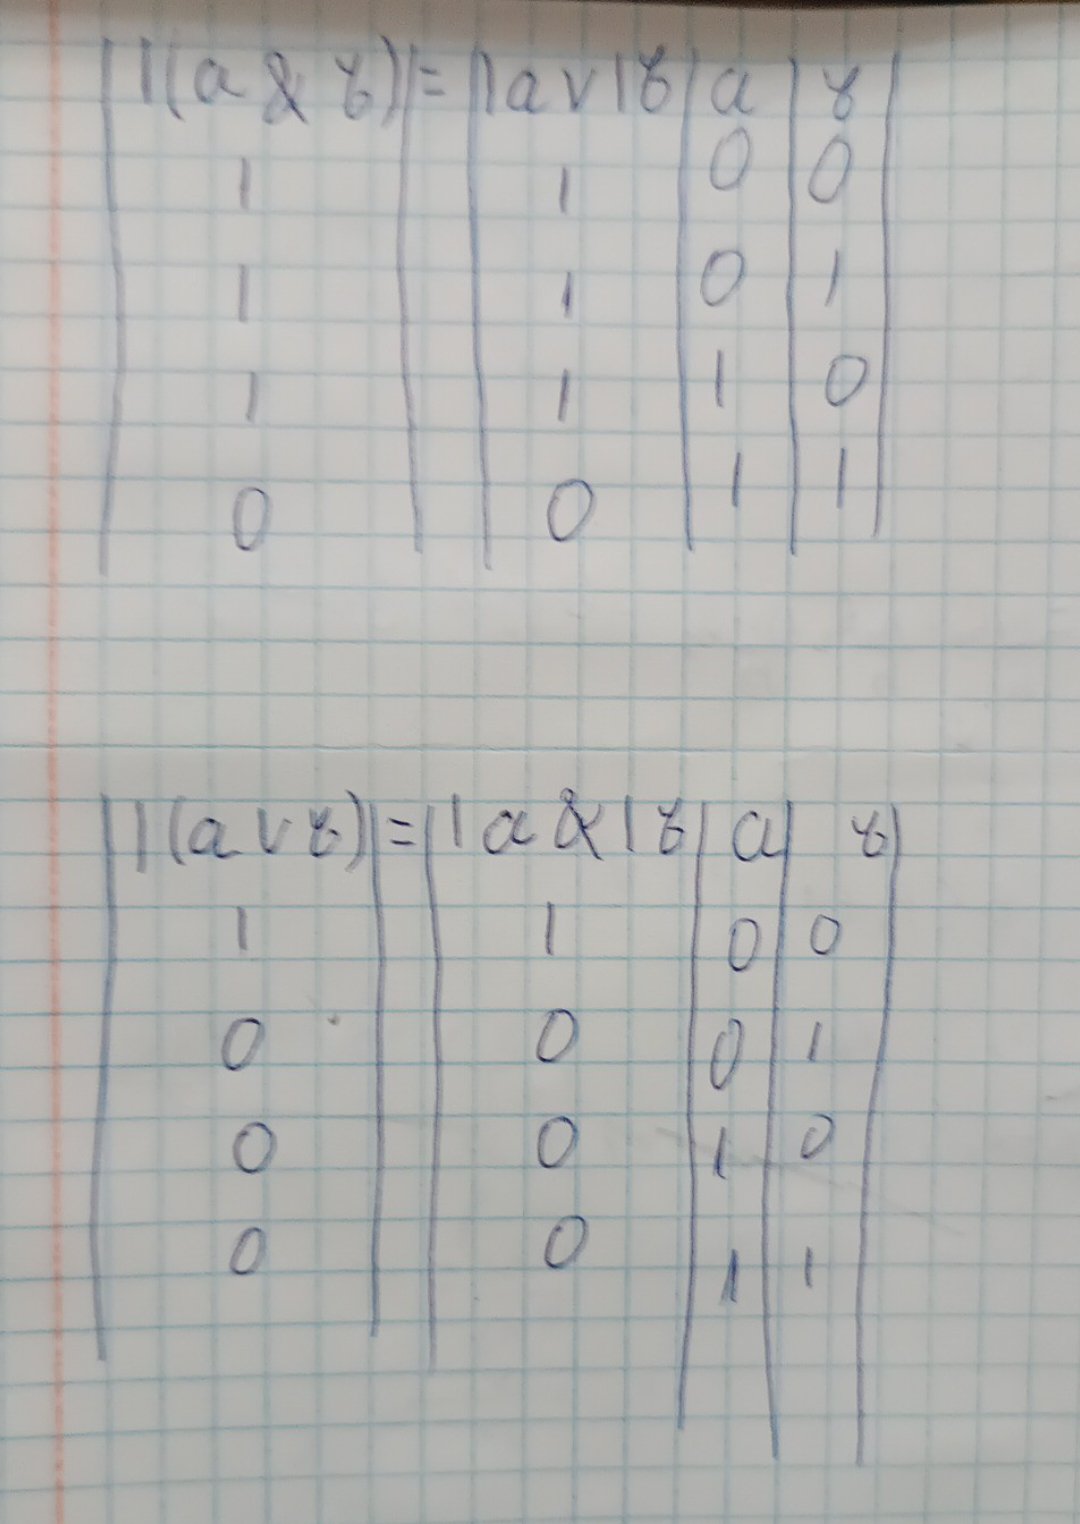 | |(a & b) | = | |a v |b | a | b |
| 1 | | 1 | 0 | 0 |
| 1 | | 1 | 0 | 1 |
| 1 | | 1 | 1 | 0 |
| 0 | | 0 | 1 | 1 |
| |(a v b) | = | |a & |b | a | b |
| 1 | | 1 | 0 | 0 |
| 0 | | 0 | 0 | 1 |
| 0 | | 0 | 1 | 0 |
| 0 | | 0 | 1 | 1 |